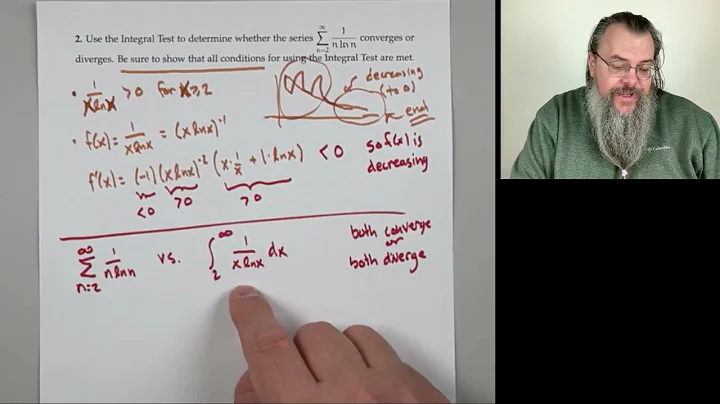 2. Use the Integral Test to determine whether the series ∑_{n=2}^{∞} 1/(n ln n) converges or
diverges. Be sure to show that all conditions for using the Integral Test are met.
• 1/(x ln x) > 0 for x ≥ 2
decreasing
(to 0)
end
• f(x) = 1/(x ln x) = (x ln x)^{-1}
f'(x) = (-1)(x ln x)^{-2} (x · 1/x + 1 · ln x) < 0
so f(x) is
decreasing
<0 >0 >0
∑_{n=2}^{∞} 1/(n ln n) vs. ∫_{2}^{∞} 1/(x ln x) dx
both converge
or
both diverge
Columbia